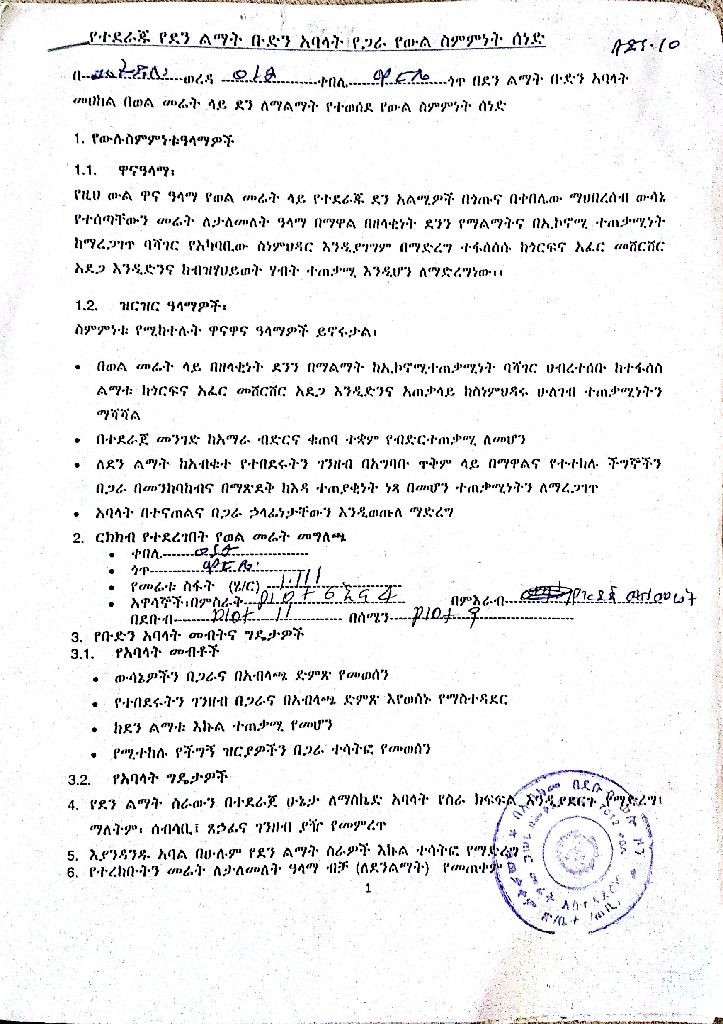 የተደራጁ የደን ልማት ቡድን አባላት የጋራ የውል ስምምነት ሰነድ
በ ወረዳ ቀበሌ ጎጥ በደን ልማት ቡድን አባላት
መሀከል በወል መሬት ላይ ደን ለማልማት የተወሰደ የውል ስምምነት ሰነድ
1. የውሉስምምነቱዓላማዎች
1.1. ዋናዓላማ፡
የዚህ ውል ዋና ዓላማ የወል መሬት ላይ የተደራጁ ደን አልሚዎች በጎጡና በቀበሌው ማህበረሰብ ውሳኔ
የተሰጣቸውን መሬት ለታለመለት ዓላማ በማዋል በዘላቂነት ደንን የማልማትና በኢኮኖሚ ተጠቃሚነት
ከማረጋገጥ ባሻገር የአካባቢው ስነምህዳር እንዲያገግም በማድረግ ተፋሰሰሱ ከጎርፍና አፈር መሸርሸር
አደጋ እንዲድንና ከብዝሃህይወት ሃብት ተጠቃሚ እንዲሆን ለማድረግነው፡፡
1.2. ዝርዝር ዓላማዎች፡
ስምምነቱ የሚከተሉት ዋናዋና ዓላማዎች ይኖሩታል፡
• በወል መሬት ላይ በዘላቂነት ደንን በማልማት ከኢኮኖሚተጠቃሚነት ባሻገር ህብረተሰቡ ከተፋሰስ
ልማቱ ከጎርፍና አፈር መሸርሸር አደጋ እንዲድንና አጠቃላይ ከስነምህዳሩ ሁለገብ ተጠቃሚነትን
ማሻሻል
• በተደራጀ መንገድ ከአማራ ብድርና ቁጠባ ተቋም የብድርተጠቃሚ ለመሆን
• ለደን ልማት ከአብቁተ የተበደሩትን ገንዘብ በአግባቡ ጥቅም ላይ በማዋልና የተተከሉ ችግኞችን
በጋራ በመንከባከብና በማጽደቅ ከእዳ ተጠያቂነት ነጻ በመሆን ተጠቃሚነትን ለማረጋገጥ
• አባላት በተናጠልና በጋራ ኃላፊነታቸውን እንዲወጡለ ማድረግ
2. ርክክብ የተደረገበት የወል መሬት መግለጫ
• ቀበሌ
• ጎጥ
• የመሬቱ ስፋት (ሄ/ር) 1.111
• አዋሳኞች፡በምስራቅ plot 6 እና 4 በምእራብ
በደቡብ plot 11 በሰሜን plot 9
3. የቡድን አባላት መብትና ግዴታዎች
3.1. የአባላት መብቶች
• ውሳኔዎችን በጋራና በአብላጫ ድምጽ የመወሰን
• የተበደሩትን ገንዘብ በጋራና በአብላጫ ድምጽ እየወሰኑ የማስተዳደር
• ከደን ልማቱ እኩል ተጠቃሚ የመሆን
• የሚተከሉ የችግኝ ዝርያዎችን በጋራ ተሳትፎ የመወሰን
3.2. የአባላት ግዴታዎች
4. የደን ልማት ስራውን በተደራጀ ሁኔታ ለማስኬድ አባላት የስራ ክፍፍል እንዲያደርጉ የማድረግ፡
ማለትም፡ ሰብሳቢ፣ ጸኃፊና ገንዘብ ያዥ የመምረጥ
5. እያንዳንዱ አባል በሁሉም የደን ልማት ስራዎች እኩል ተሳትፎ የማድረግ
6. የተረከቡትን መሬት ለታለመለት ዓላማ ብቻ (ለደንልማት) የመጠቀም
1